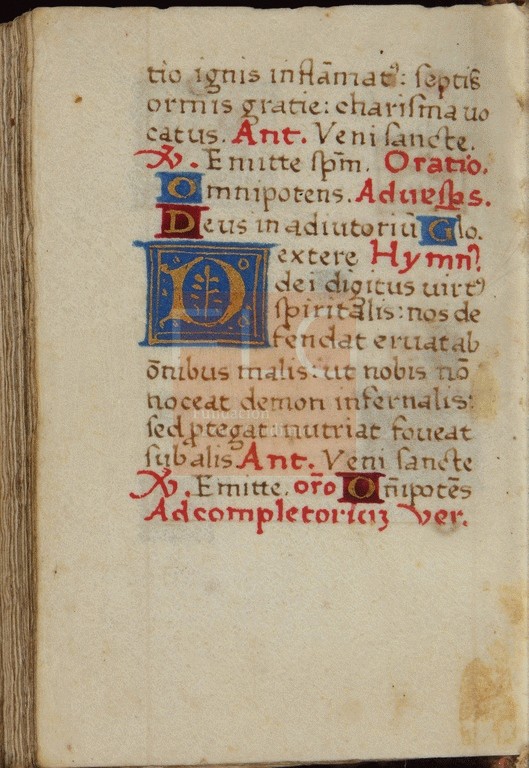 tio ignis inflāmat᷒: septifꝫ
ormis gratie: charisma uo
catus. Ant. Veni sancte.
℣. Emitte sp̄m. Oratio.
Omnipotens. Aduesꝑs.
Deus in adiutoriū Glo.
Dextere Hymn᷒
dei digitus uirt᷒
spiritalis: nos de
fendat eruat ab
ōnibus malis: ut nobis nō
noceat demon infernalis:
sed ꝓtegat nutriat foueat
sub alis Ant. Veni sancte
℣. Emitte. or̄o On̄ipotēs
Ad completoriuꝫ ver.